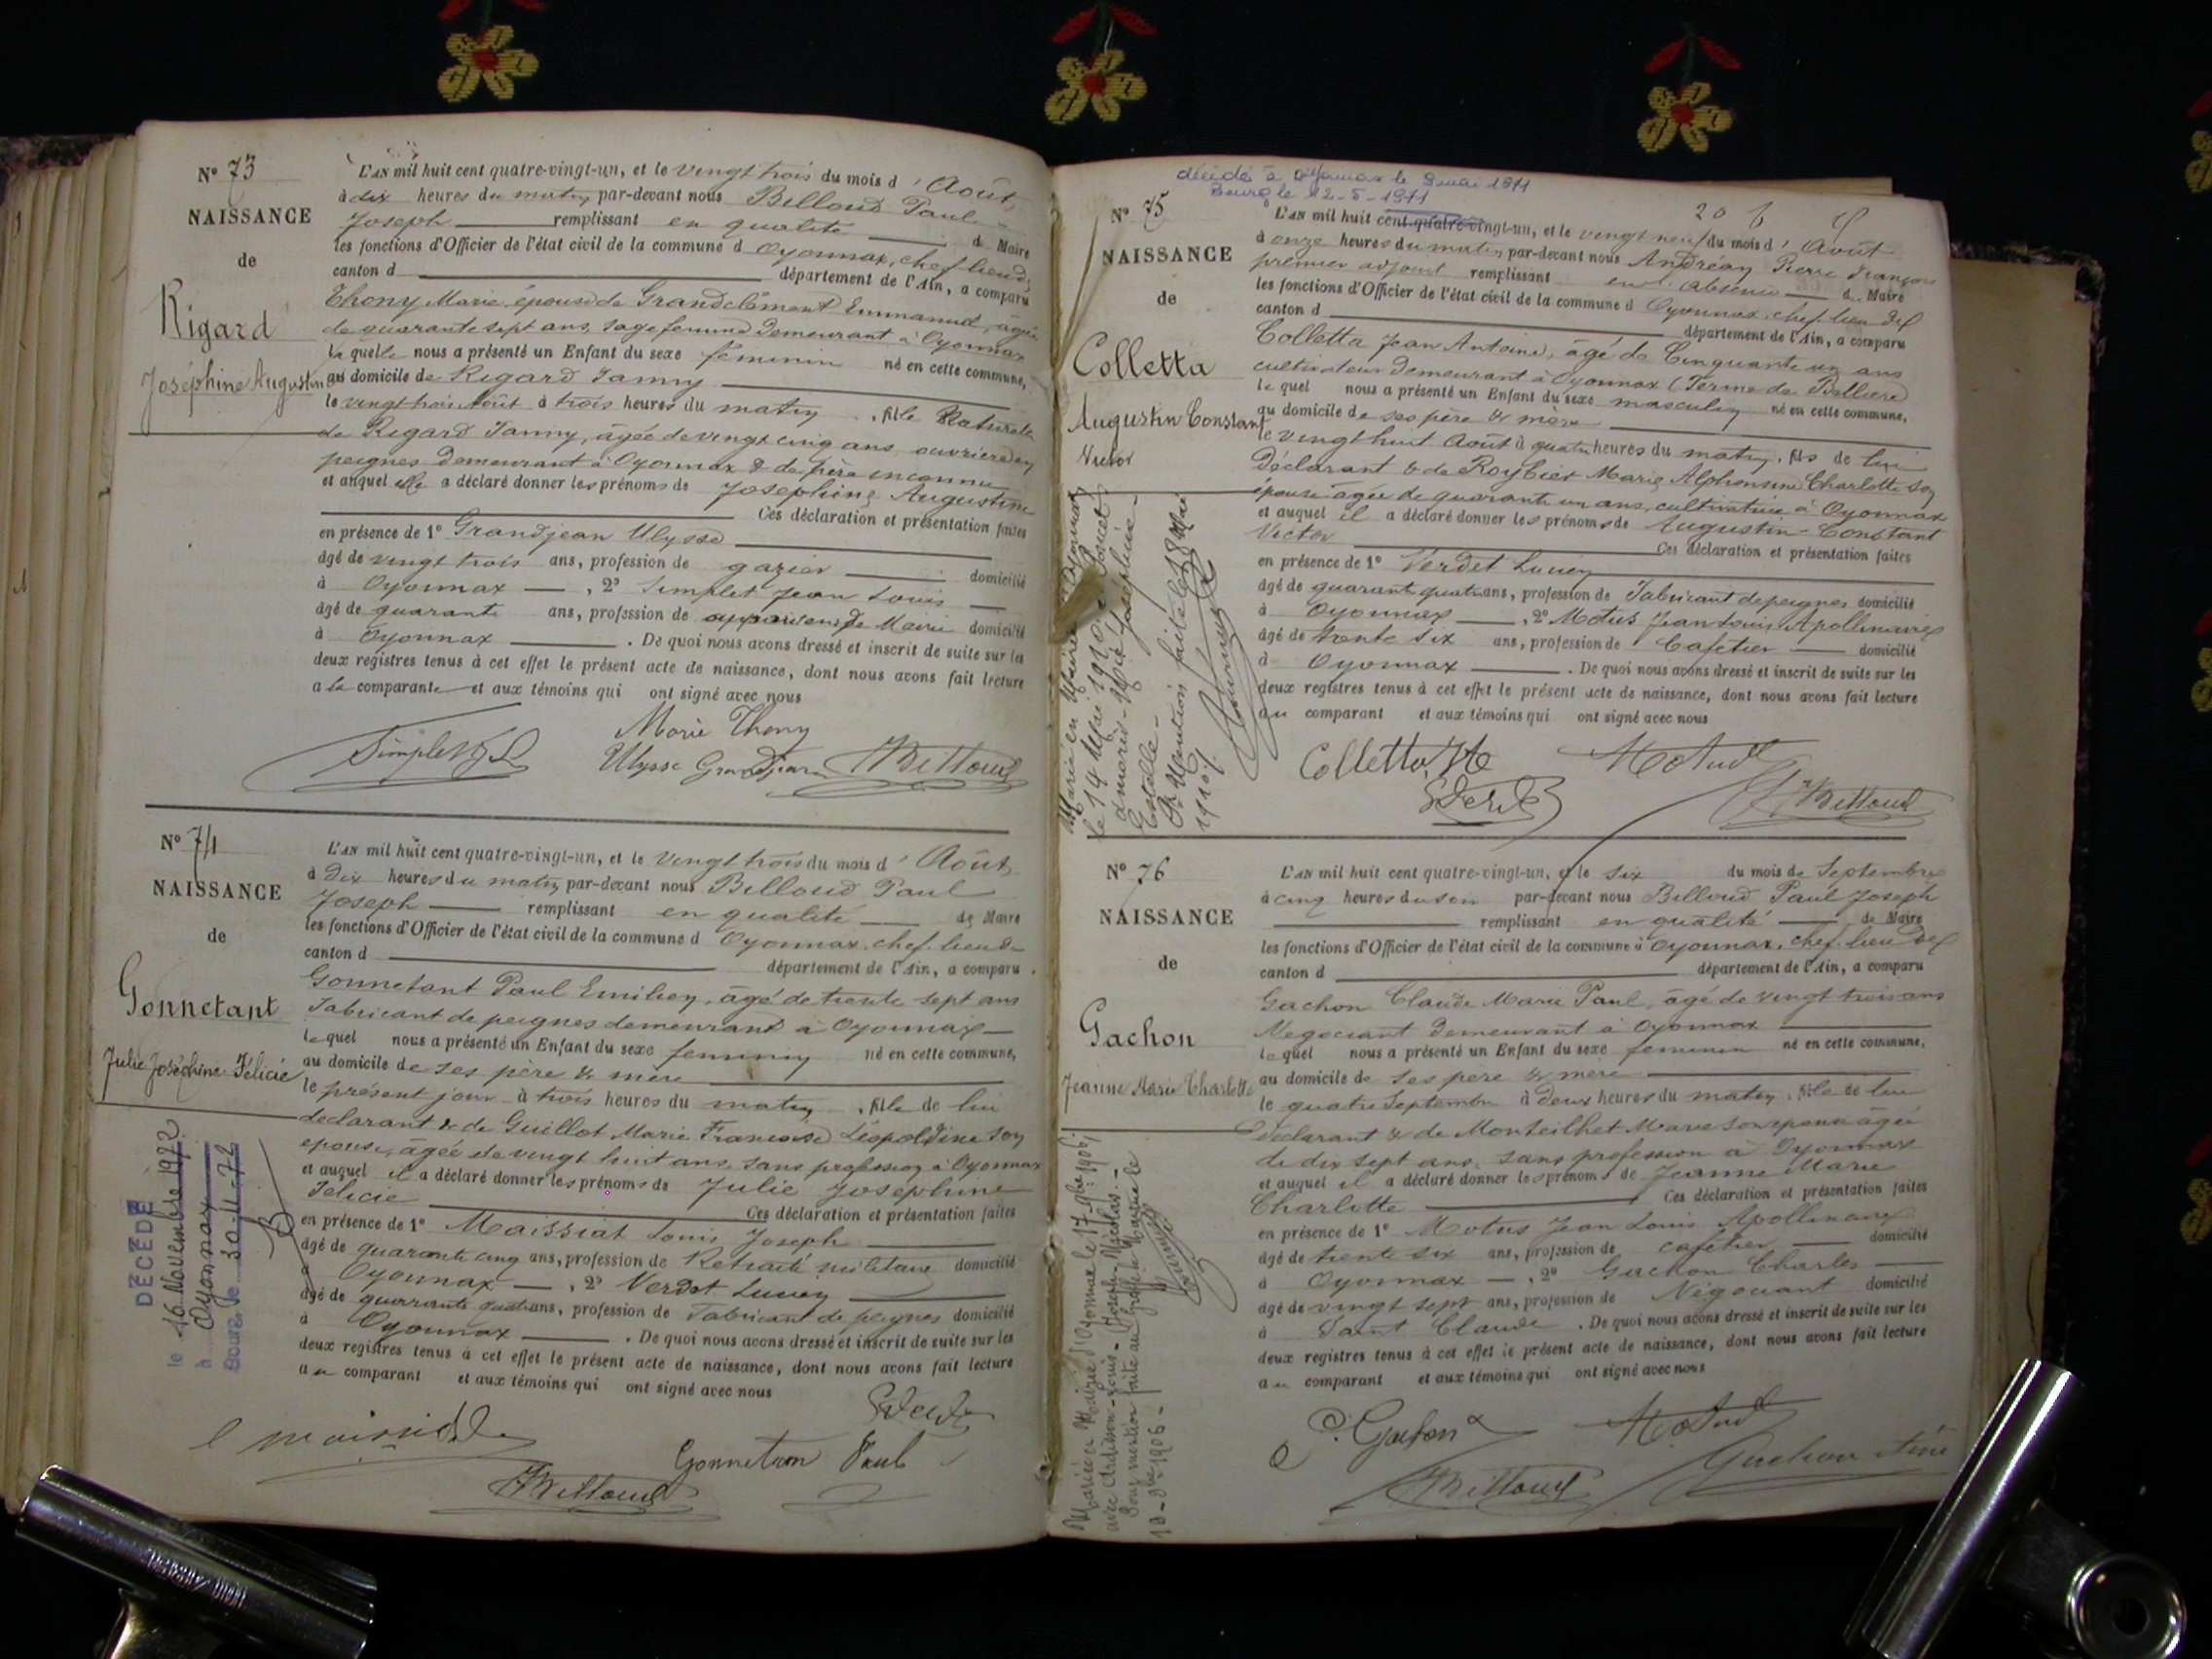 N° 73
NAISSANCE
de
Rigard
Joséphine Augustin
L'AN mil huit cent quatre-vingt-un, et le vingt trois du mois d' Août
à dix heures du matin par-devant nous Billoud Paul
Joseph remplissant en qualité de Maire
les fonctions d'Officier de l'état civil de la commune d Oyonnax, chef-lieu de
canton d département de l'Ain, a comparu
Thony Marie épouse de Grandclément Emmanuel, âgée
de quarante sept ans, sage femme demeurant à Oyonnax
laquelle nous a présenté un Enfant du sexe féminin né en cette commune,
au domicile de Rigard Fanny
le vingt trois Août à trois heures du matin, fille Naturelle
de Rigard Fanny, âgée de vingt cinq ans, ouvrière en
peignes demeurant à Oyonnax & de père inconnu
et auquel elle a déclaré donner les prénoms de Joséphine Augustine
Ces déclaration et présentation faites
en présence de 1° Grandjean Ulysse
âgé de vingt trois ans, profession de gazier domicilié
à Oyonnax, 2° Simplet Jean Louis
âgé de quarante ans, profession de appariteur de Mairie domicilié
à Oyonnax. De quoi nous avons dressé et inscrit de suite sur les
deux registres tenus à cet effet le présent acte de naissance, dont nous avons fait lecture
a la comparante et aux témoins qui ont signé avec nous
Marie Thony
Simplet J L Ulysse Grandjean Billoud
N° 74
NAISSANCE
de
Gonnetant
Julie Joséphine Félicie
DÉCÉDÉ
le 16 Novembre 1972
à Oyonnax
Bourg, le 30-11-72
L'AN mil huit cent quatre-vingt-un, et le vingt trois du mois d' Août
à dix heures du matin par-devant nous Billoud Paul
Joseph remplissant en qualité de Maire
les fonctions d'Officier de l'état civil de la commune d Oyonnax, chef-lieu de
canton d département de l'Ain, a comparu
Gonnetant Paul Emilien, âgé de trente sept ans
Fabricant de peignes demeurant à Oyonnax
lequel nous a présenté un Enfant du sexe féminin né en cette commune,
au domicile de ses père & mère
le présent jour à trois heures du matin, fille de lui
déclarant & de Guillot Marie Françoise Léopoldine son
épouse, âgée de vingt huit ans, sans profession à Oyonnax
et auquel il a déclaré donner les prénoms de Julie Joséphine
Félicie Ces déclaration et présentation faites
en présence de 1° Maissiat Louis Joseph
âgé de quarante cinq ans, profession de Retraité militaire domicilié
à Oyonnax, 2° Verdet Lucien
âgé de quarante quatre ans, profession de Fabricant de peignes domicilié
à Oyonnax. De quoi nous avons dressé et inscrit de suite sur les
deux registres tenus à cet effet le présent acte de naissance, dont nous avons fait lecture
au comparant et aux témoins qui ont signé avec nous
Gonnetan Paul
Billoud
décédé à Oyonnax le 9 mai 1911
Bourg le 12-5-1911
N° 75
NAISSANCE
de
Colletta
Augustin Constant
Victor
L'AN mil huit cent quatre-vingt-un, et le vingt neuf du mois d' Août
à onze heures du matin par-devant nous Andréan Pierre François
premier adjoint remplissant en l'absence du Maire
les fonctions d'Officier de l'état civil de la commune d Oyonnax, chef-lieu de
canton d département de l'Ain, a comparu
Colletta Jean Antoine, âgé de Cinquante un ans
cultivateur demeurant à Oyonnax (Ferme de
lequel nous a présenté un Enfant du sexe masculin né en cette commune,
au domicile de ses père & mère
le vingt huit Août à quatre heures du matin, fils de lui
Déclarant & de Roybier Marie Alphonsine Charlotte son
épouse âgée de quarante un ans, cultivatrice à Oyonnax
et auquel il a déclaré donner les prénoms de Augustin-Constant
Victor Ces déclaration et présentation faites
en présence de 1° Verdet Lucien
âgé de quarante quatre ans, profession de Fabricant de peignes domicilié
à Oyonnax, 2° Motus Jean Louis Apollinaire
âgé de trente six ans, profession de Cafetier domicilié
à Oyonnax. De quoi nous avons dressé et inscrit de suite sur les
deux registres tenus à cet effet le présent acte de naissance, dont nous avons fait lecture
au comparant et aux témoins qui ont signé avec nous
Colletta
Billoud
N° 76
NAISSANCE
de
Gachon
Jeanne Marie Charlotte
L'AN mil huit cent quatre-vingt-un, et le six du mois de Septembre
à cinq heures du soir par-devant nous Billoud Paul Joseph
remplissant en qualité de Maire
les fonctions d'Officier de l'état civil de la commune d Oyonnax, chef-lieu de
canton d département de l'Ain, a comparu
Gachon Claude Marie Paul, âgé de vingt trois ans
Négociant demeurant à Oyonnax
lequel nous a présenté un Enfant du sexe féminin né en cette commune,
au domicile de ses père & mère
le quatre Septembre à deux heures du matin, fille de lui
déclarant & de Monteilhet Marie son épouse âgée
de dix sept ans, sans profession à Oyonnax
et auquel il a déclaré donner les prénoms de Jeanne Marie
Charlotte Ces déclaration et présentation faites
en présence de 1° Motus Jean Louis Apollinaire
âgé de trente six ans, profession de cafetier domicilié
à Oyonnax, 2° Gachon Charles
âgé de vingt sept ans, profession de Négociant domicilié
à Saint Claude. De quoi nous avons dressé et inscrit de suite sur les
deux registres tenus à cet effet le présent acte de naissance, dont nous avons fait lecture
au comparant et aux témoins qui ont signé avec nous
Gachon
Billoud Gachon